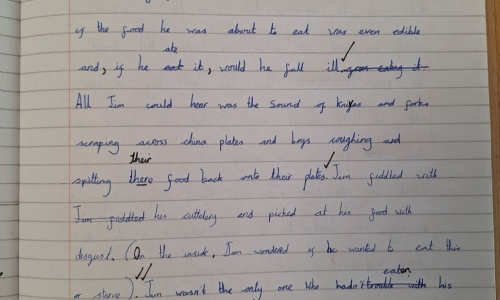 if the food he was about to eat was even edible
ate
and, if he eat it, would he fall ill. from eating it
All Jim could hear was the sound of knifes and forks
scraping across china plates and boys coughing and
their
spitting there food back onto their plates. Jim fiddled with
Jim fiddled his cuttelery and picked at his food with
disgust. (On the inside, Jim wondered if he wanted to eat this
eaten
or starve). Jim wasn't the only one who hadn't trouble with his